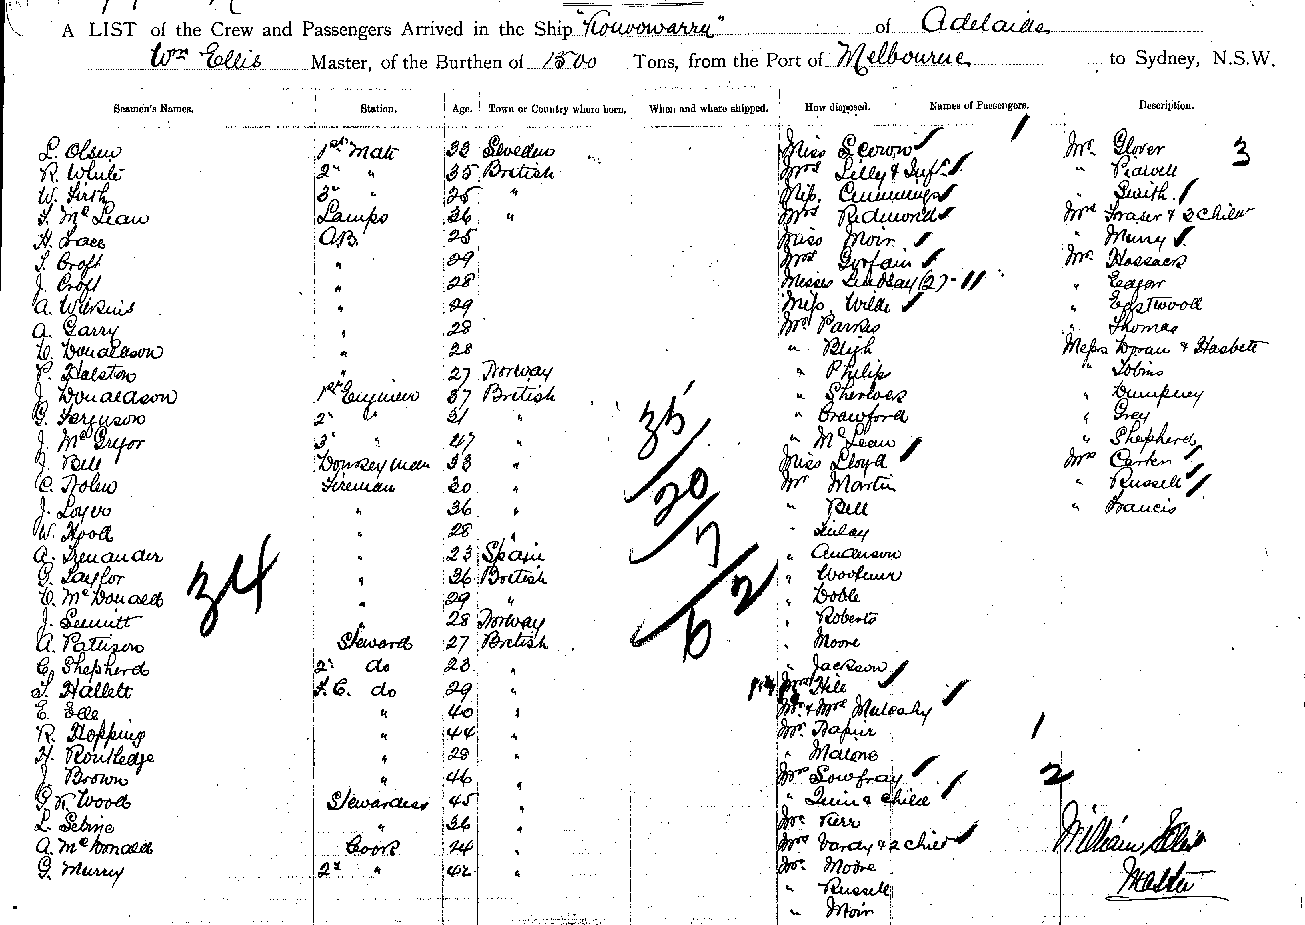 A LIST of the Crew and Passengers Arrived in the Ship "Kouvowarra" of Adelaide
Wm Ellis Master, of the Burthen of 1500 Tons, from the Port of Melbourne to Sydney, N.S.W.
Seamen's Names. Station. Age. Town or Country where born. When and where shipped. How disposed. Names of Passengers. Description.
L. Olsen 1st Mate 33 Sweden Miss Mr Glover 3
R. White 2" " 35 British Mrs Lilly & Inft "
W. Firth 3" " 25 " Miss Cummings " Smith
McLean Lamps 36 " Mrs Redmond Mrs Fraser & 2 Child
H. AB. 25 Miss Moir " Murry
Croft " 29 Mrs Mr Hossack
J. Croft " 28 Misses Lindsay (2) - 11 " Edgar
A. Wilkins " 29 Miss Wilde " Eastwood
A. Garry " 28 Mr Parkes " Thomas
Donaldson " 28 " Bligh Messrs Doran & Hasbett
P. Halston " 27 Norway " Philip " Tobins
J. Donaldson 1st Engineer 37 British " Sherlock "
G. Ferguson 2" " 31 " " Crawford " Grey
J. McGregor 3" " 47 " " McLean " Shepherd
J. Bell Donkeyman 33 " Miss Lloyd Mrs Carter
C. Nolen Fireman 30 " Mr Martin " Russell
J. " 36 " " Bell " Francis
W. Hood " 28 " " Finlay
A. " 23 Spain " Anderson
G. Taylor " 36 British "
McDonald " 29 " " Doble
J. " 28 Norway " Roberts
A. Pattison Steward 27 British " Moore
C. Shepherd 2" do 23 " " Jackson
Hallett F.C. do 29 " Mrs Hill
E. " 40 " Mr & Mrs Mulcahy
R. Hopping " 44 " Mr Napier
H. Routledge " 28 " " Malone
J. Brown " 46 " Mrs
Wood Stewardess 45 " " Quin & Child
L. " 36 " Mr Kerr
A. McDonald Cook 24 " Mrs Varay & 2 Child
G. Murry 2" " 42 Mr Moore
" Russell
" Moir
34
35
20
7
62
1
1
2
William Ellis
Master